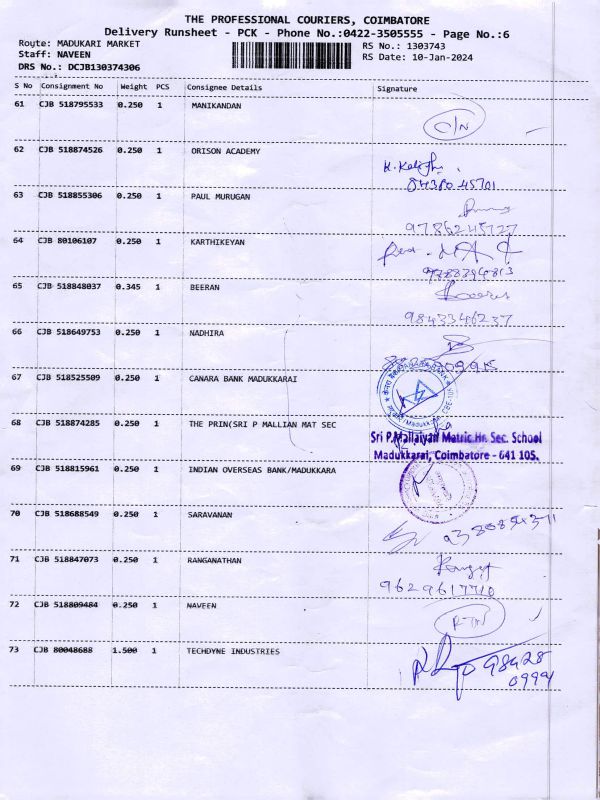 THE PROFESSIONAL COURIERS, COIMBATORE
Delivery Runsheet - PCK - Phone No.:0422-3505555 - Page No.:6
Route: MADUKARI MARKET
RS No.: 1303743
Staff: NAVEEN
RS Date: 10-Jan-2024
DRS No.: DCJB130374306
S No Consignment No Weight PCS Consignee Details Signature
61 CJB 518795533 0.250 1 MANIKANDAN
62 CJB 518874526 0.250 1 ORISON ACADEMY
84380 45701
63 CJB 518855306 0.250 1 PAUL MURUGAN
9786245727
64 CJB 80106107 0.250 1 KARTHIKEYAN
65 CJB 518848037 0.345 1 BEERAN
9843346237
66 CJB 518649753 0.250 1 NADHIRA
67 CJB 518525509 0.250 1 CANARA BANK MADUKKARAI
68 CJB 518874285 0.250 1 THE PRIN(SRI P MALLIAN MAT SEC
Sri P.Mallaiyan Matric.Hr. Sec. School
Madukkarai, Coimbatore - 641 105.
69 CJB 518815961 0.250 1 INDIAN OVERSEAS BANK/MADUKKARA
70 CJB 518688549 0.250 1 SARAVANAN
71 CJB 518847073 0.250 1 RANGANATHAN
9629617710
72 CJB 518809484 0.250 1 NAVEEN
RTN
73 CJB 80048688 1.500 1 TECHDYNE INDUSTRIES
98428